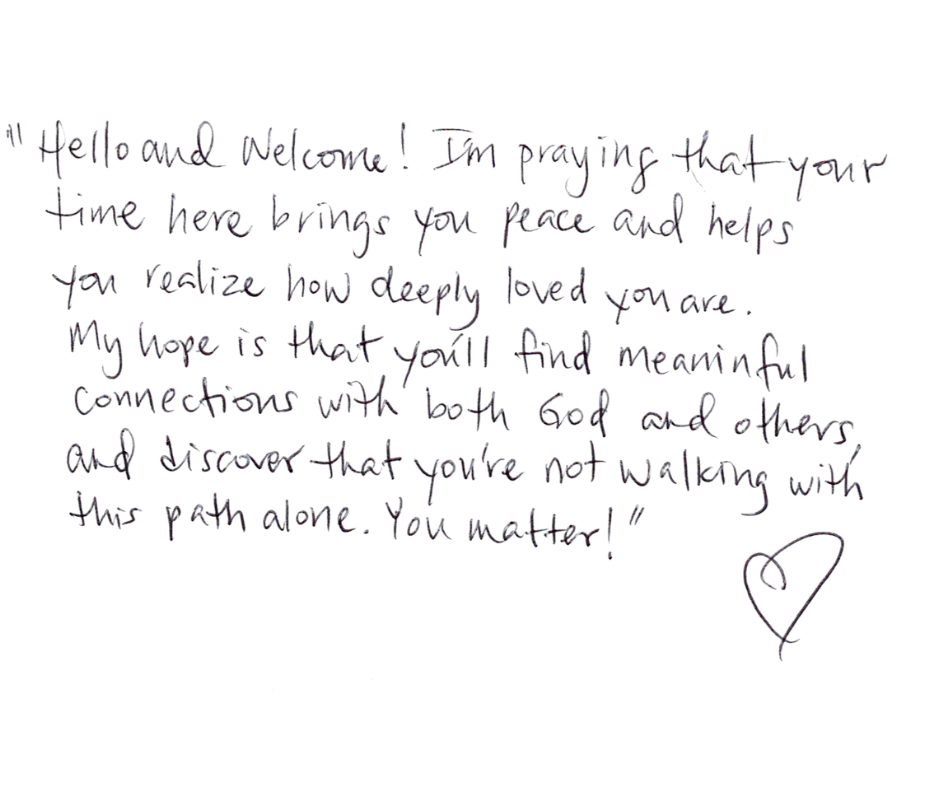 "Hello and Welcome! I'm praying that your
time here brings you peace and helps
you realize how deeply loved you are.
My hope is that you'll find meaninful
connections with both God and others,
and discover that you're not walking with
this path alone. You matter!"